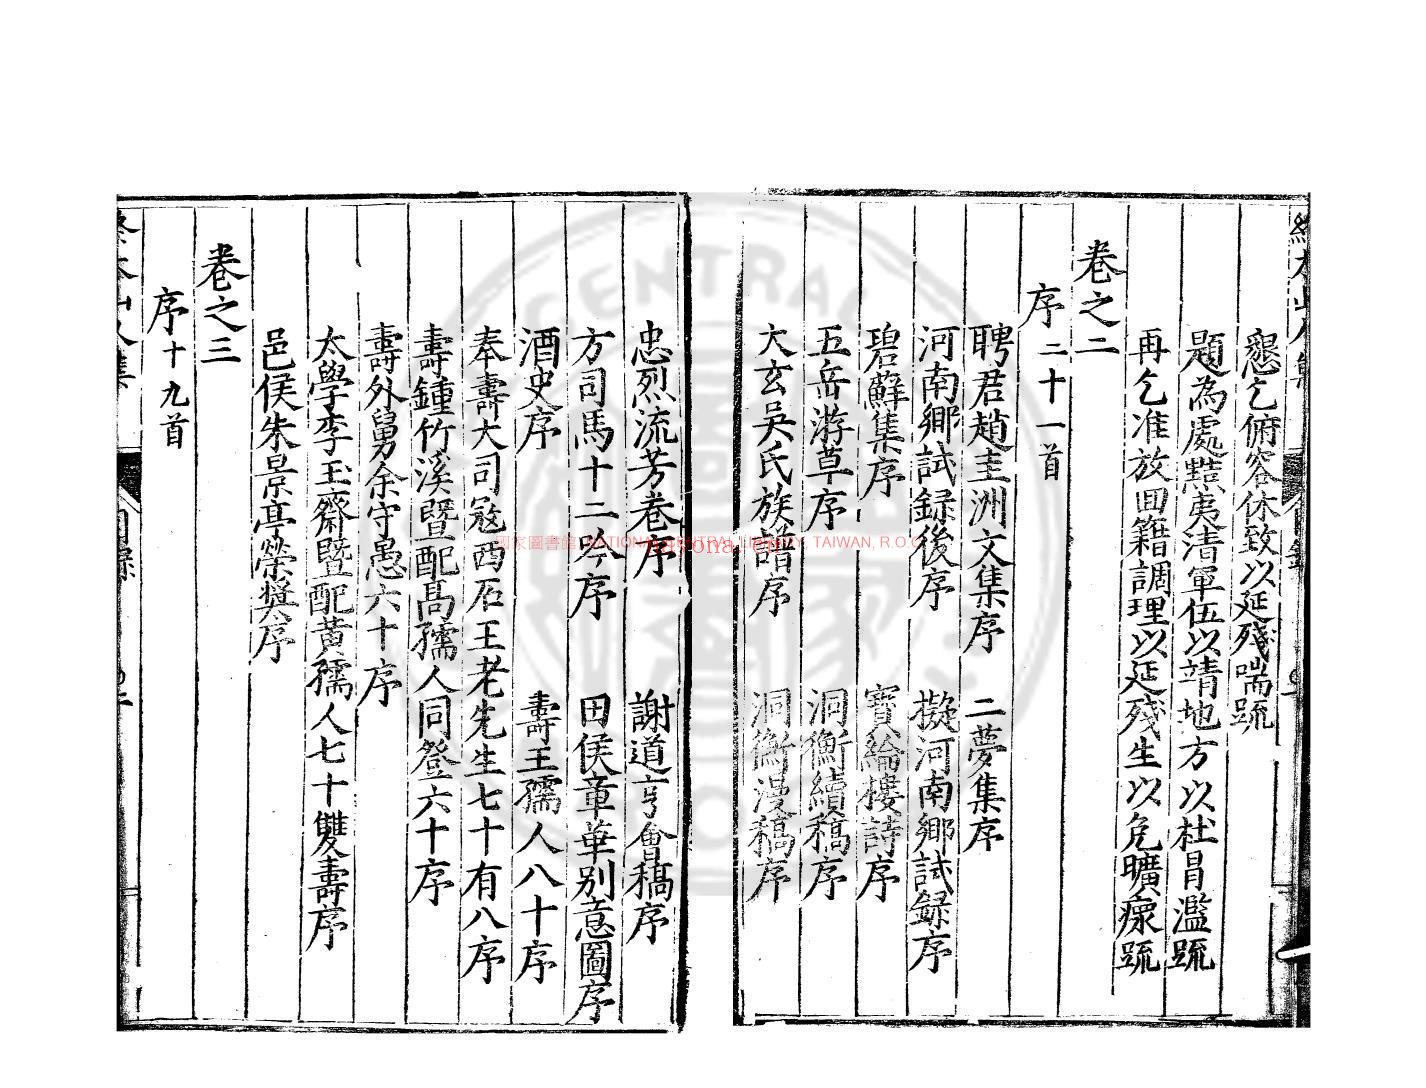 懇乞俯容休致以延殘喘疏
題為處黜夷清軍伍以靖地方以杜冒濫疏
再乞准放回籍調理以延殘生以免曠瘝疏
卷之二
序二十一首
聘君趙圭洲文集序 二夢集序
河南鄉試録後序 擬河南鄉試録序
碧蘚集序 寳綸樓詩序
五岳游草序 洞衡續稿序
大玄吴氏族譜序 洞衡漫稿序
忠烈流芳卷序 謝道亨會稿序
方司馬十二吟序 田侯章華别意圖序
酒史序 壽王孺人八十序
奉壽大司寇西石王老先生七十有八序
壽鍾竹溪暨配髙孺人同登六十序
壽外舅余守愚六十序
太學李玉齋暨配黄孺人七十雙壽序
邑侯朱景亭榮奬序
卷之三
序十九首
國家圖書館 NATIONAL CENTRAL LIBRARY, TAIWAN, R.O.C